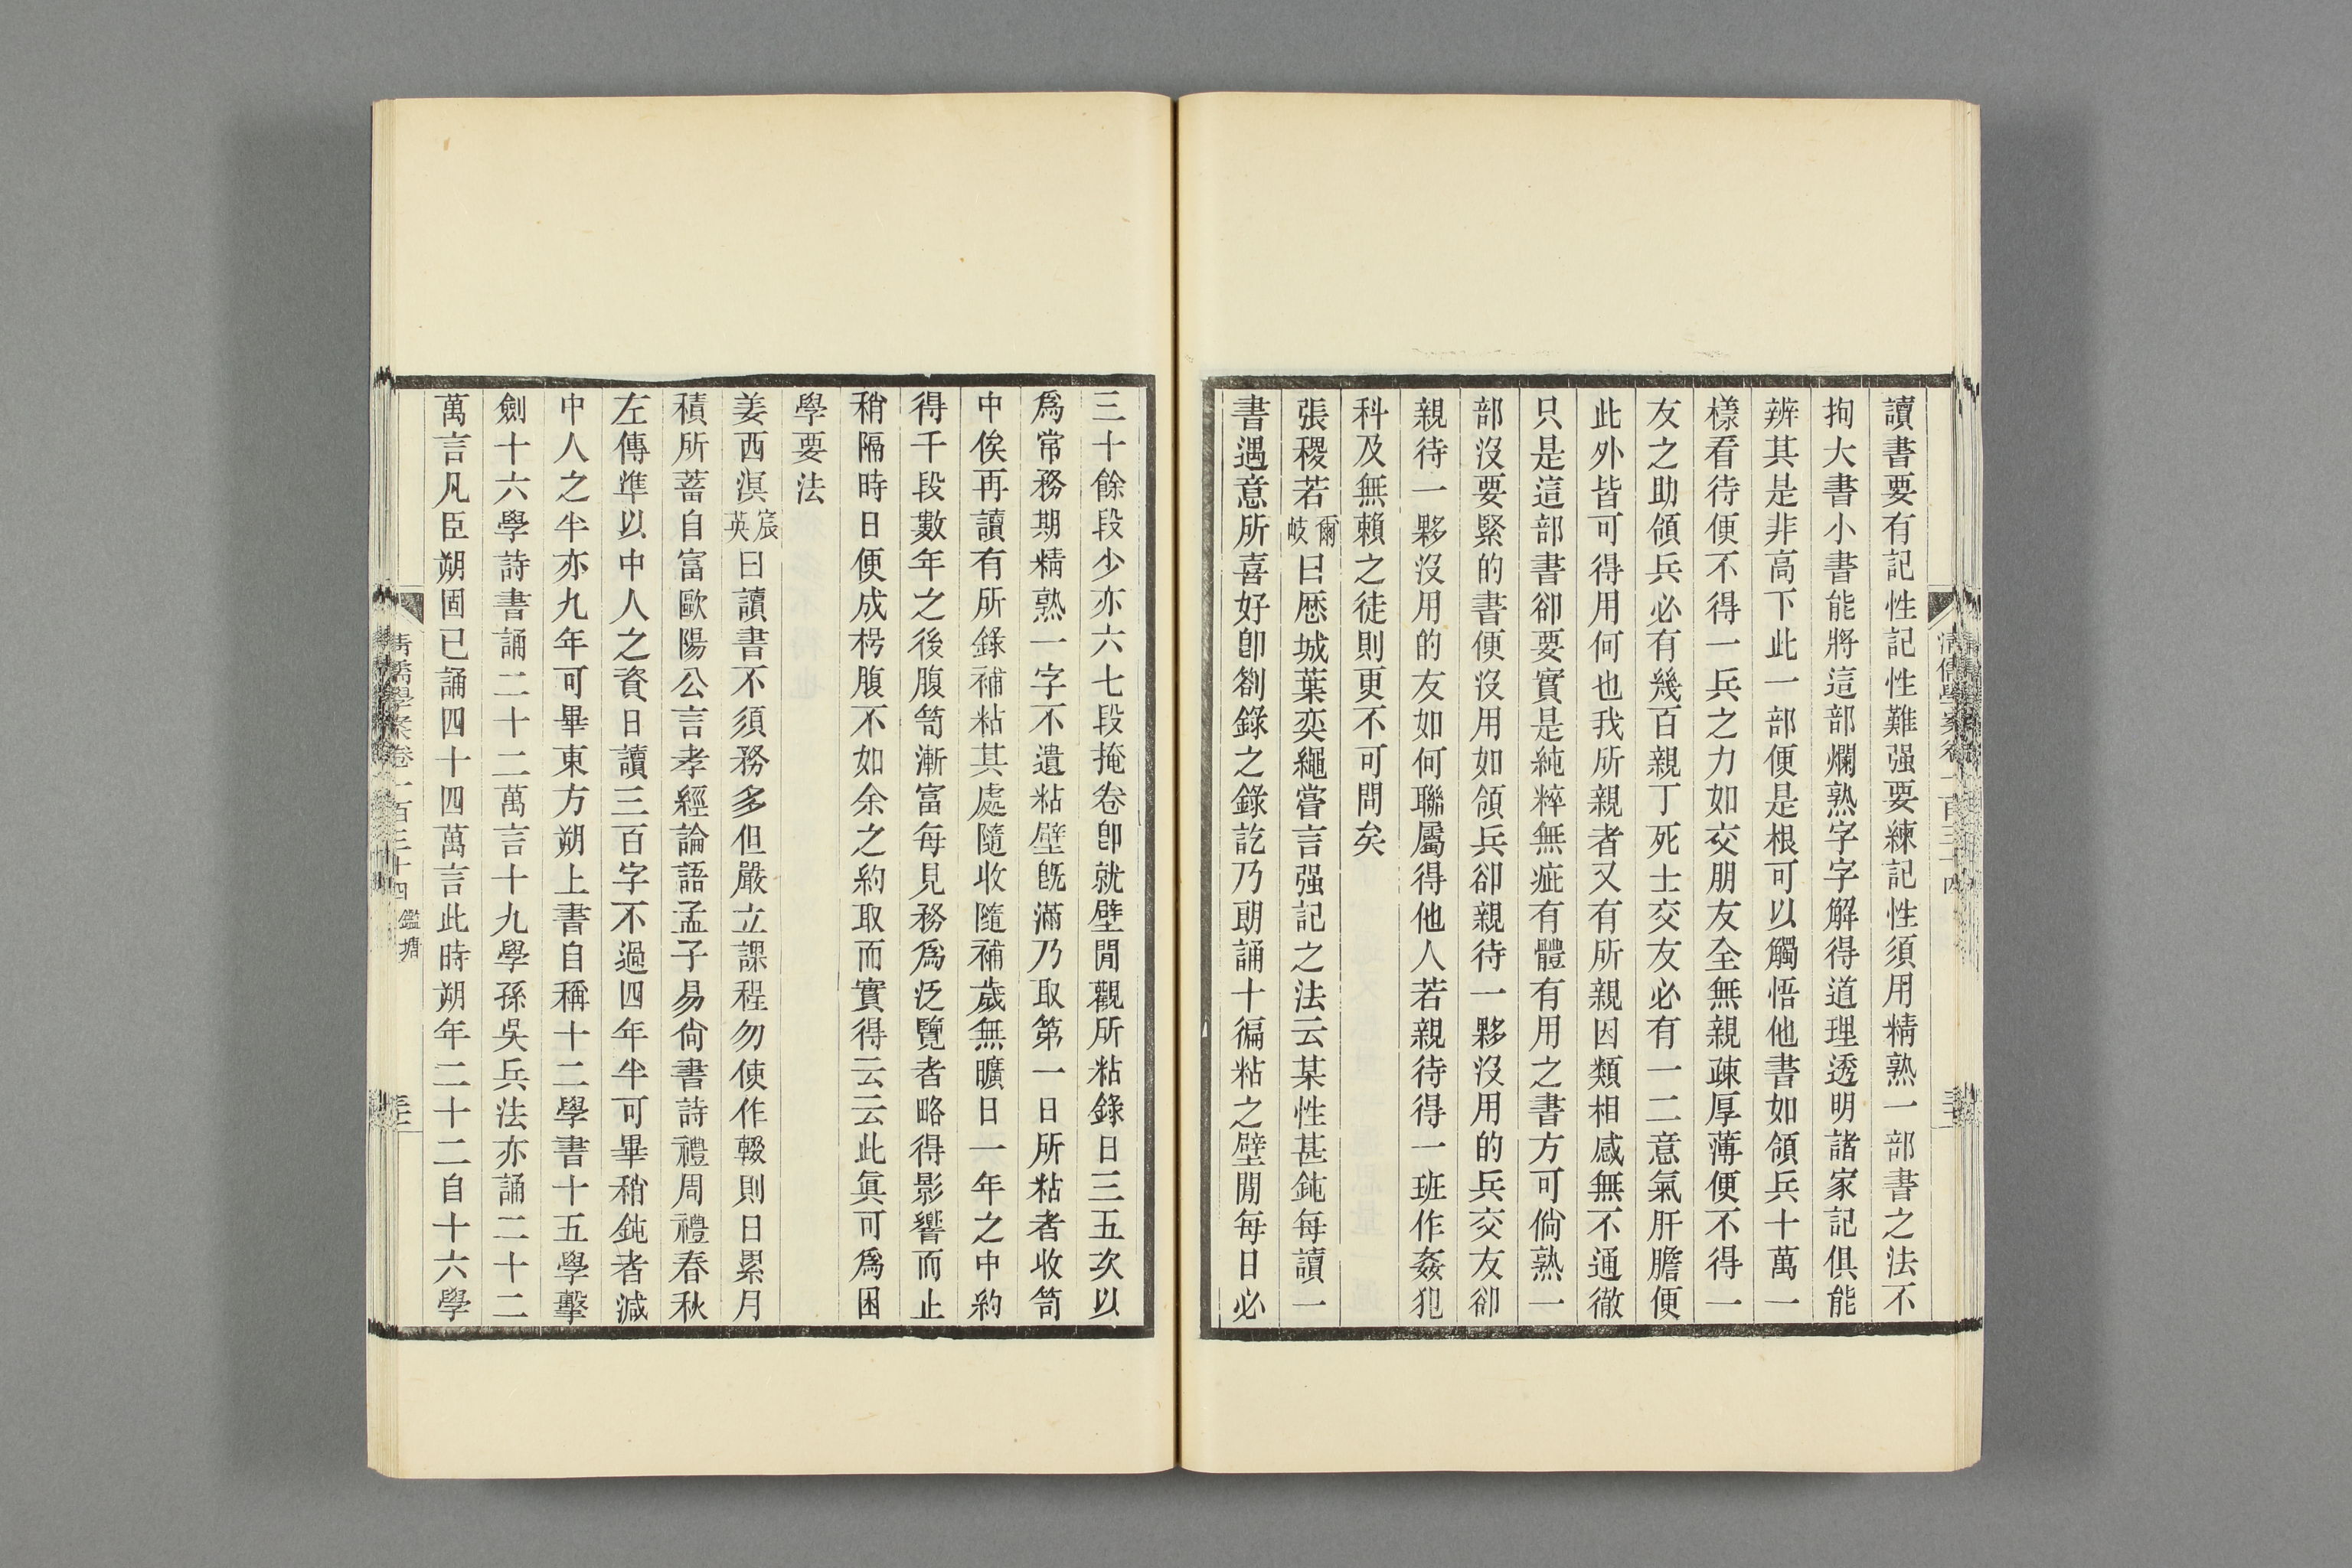 讀書要有記性記性難强要練記性須用精熟一部書之法不
拘大書小書能將這部爛熟字字解得道理透明諸家記俱能
辨其是非高下此一部便是根可以觸悟他書如領兵十萬一
樣看待便不得一兵之力如交朋友全無親疎厚薄便不得一
友之助領兵必有幾百親丁死士交友必有一二意氣肝膽便
此外皆可得用何也我所親者又有所親因類相感無不通徹
只是這部書卻要實是純粹無疵有體有用之書方可倘熟一
部沒要緊的書便沒用如領兵卻親待一夥沒用的兵交友卻
親待一夥沒用的友如何聯屬得他人若親待得一班作姦犯
科及無賴之徒則更不可問矣
張稷若爾岐曰厯城葉奕繩嘗言强記之法云某性甚鈍每讀一
書遇意所喜好卽劄錄之錄訖乃朗誦十徧粘之壁閒每日必
三十餘段少亦六七段掩卷卽就壁閒觀所粘錄日三五次以
爲常務期精熟一字不遺粘壁旣滿乃取第一日所粘者收笥
中俟再讀有所錄補粘其處隨收隨補歲無曠日一年之中約
得千段數年之後腹笥漸富每見務爲泛覽者略得影響而止
稍隔時日便成枵腹不如余之約取而實得云云此眞可爲困
學要法
姜西溟宸英曰讀書不須務多但嚴立課程勿使作輟則日累月
積所蓄自富歐陽公言孝經論語孟子易尙書詩禮周禮春秋
左傳準以中人之資日讀三百字不過四年半可畢稍鈍者減
中人之半亦九年可畢東方朔上書自稱十二學書十五學擊
劍十六學詩書誦二十二萬言十九學孫吳兵法亦誦二十二
萬言凡臣朔固已誦四十四萬言此時朔年二十二自十六學
清儒學案卷一百三十四 鑑塘